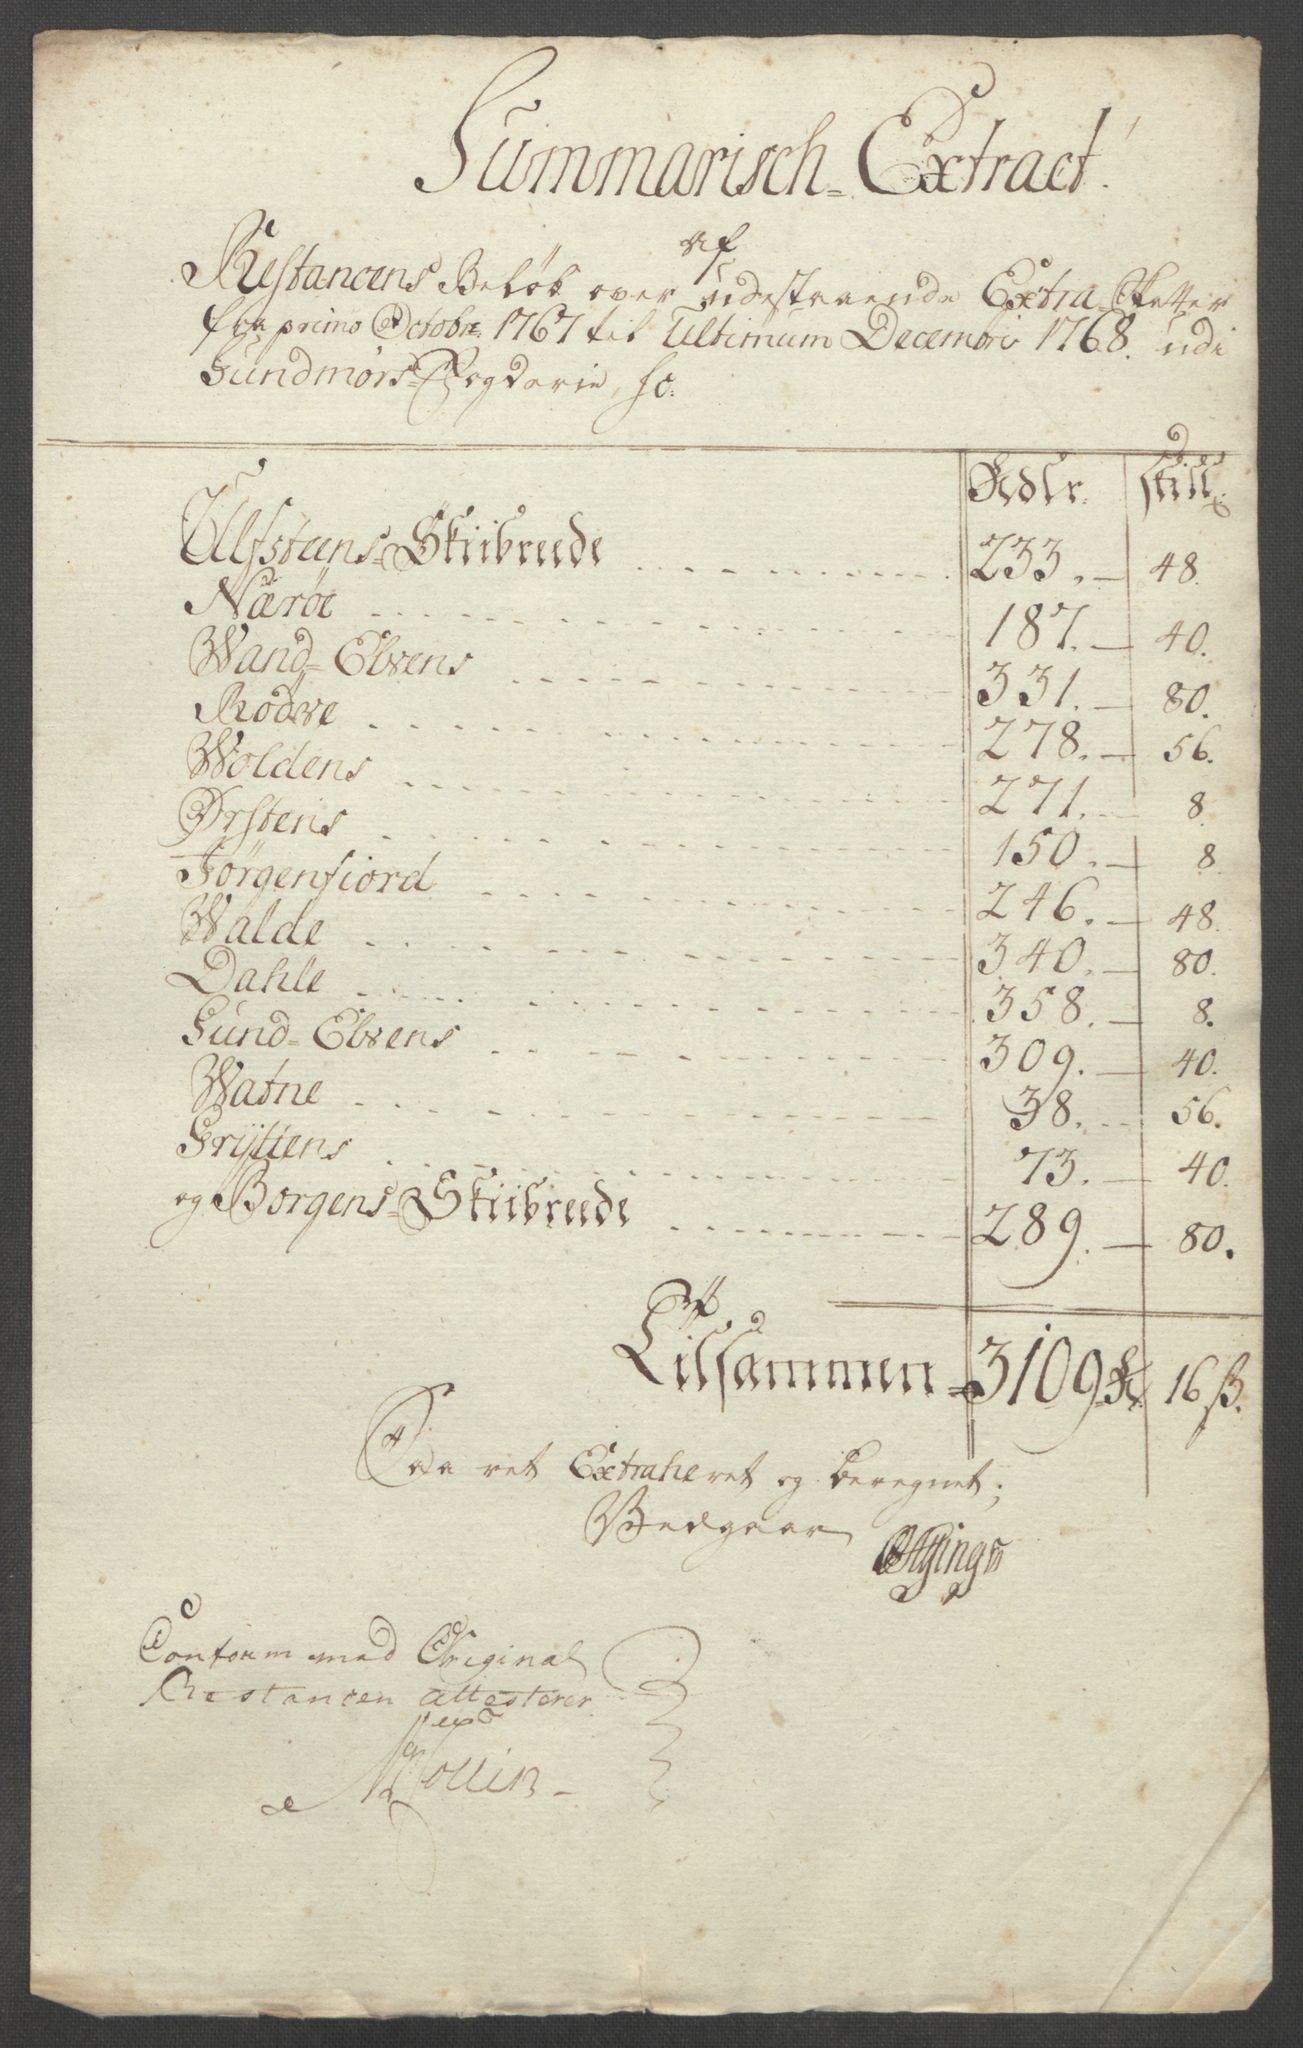 Summarisch-Extract
af
Restancens Beløb over udestaaende Extra Skatter
fra primo Octobr. 1767 til Ultimum Decembris 1768. udi
Sundmørs Fogderie, sc.
Rdlr. skill.
Ulfsteens-Skiibreede 233. 48.
Nærøe 187. 40.
Wand-Elvens 331. 80.
Rødwe 278. 56.
Woldens 271. 8
Ørstens 150. 8
Jørgenfiord 246. 48.
Walde 340. 80.
Dahle 358. 8.
Sund-Elvens 309. 40.
Watne 38. 56.
Gryttens 73. 40.
og Borgens-Skiibreede 289. 80.
Tilsammen 3109 Rd. 16 ß.
Saa ret Extraheret og beregnet;
Vedgaar
Conform med Original
Restancen attesterer